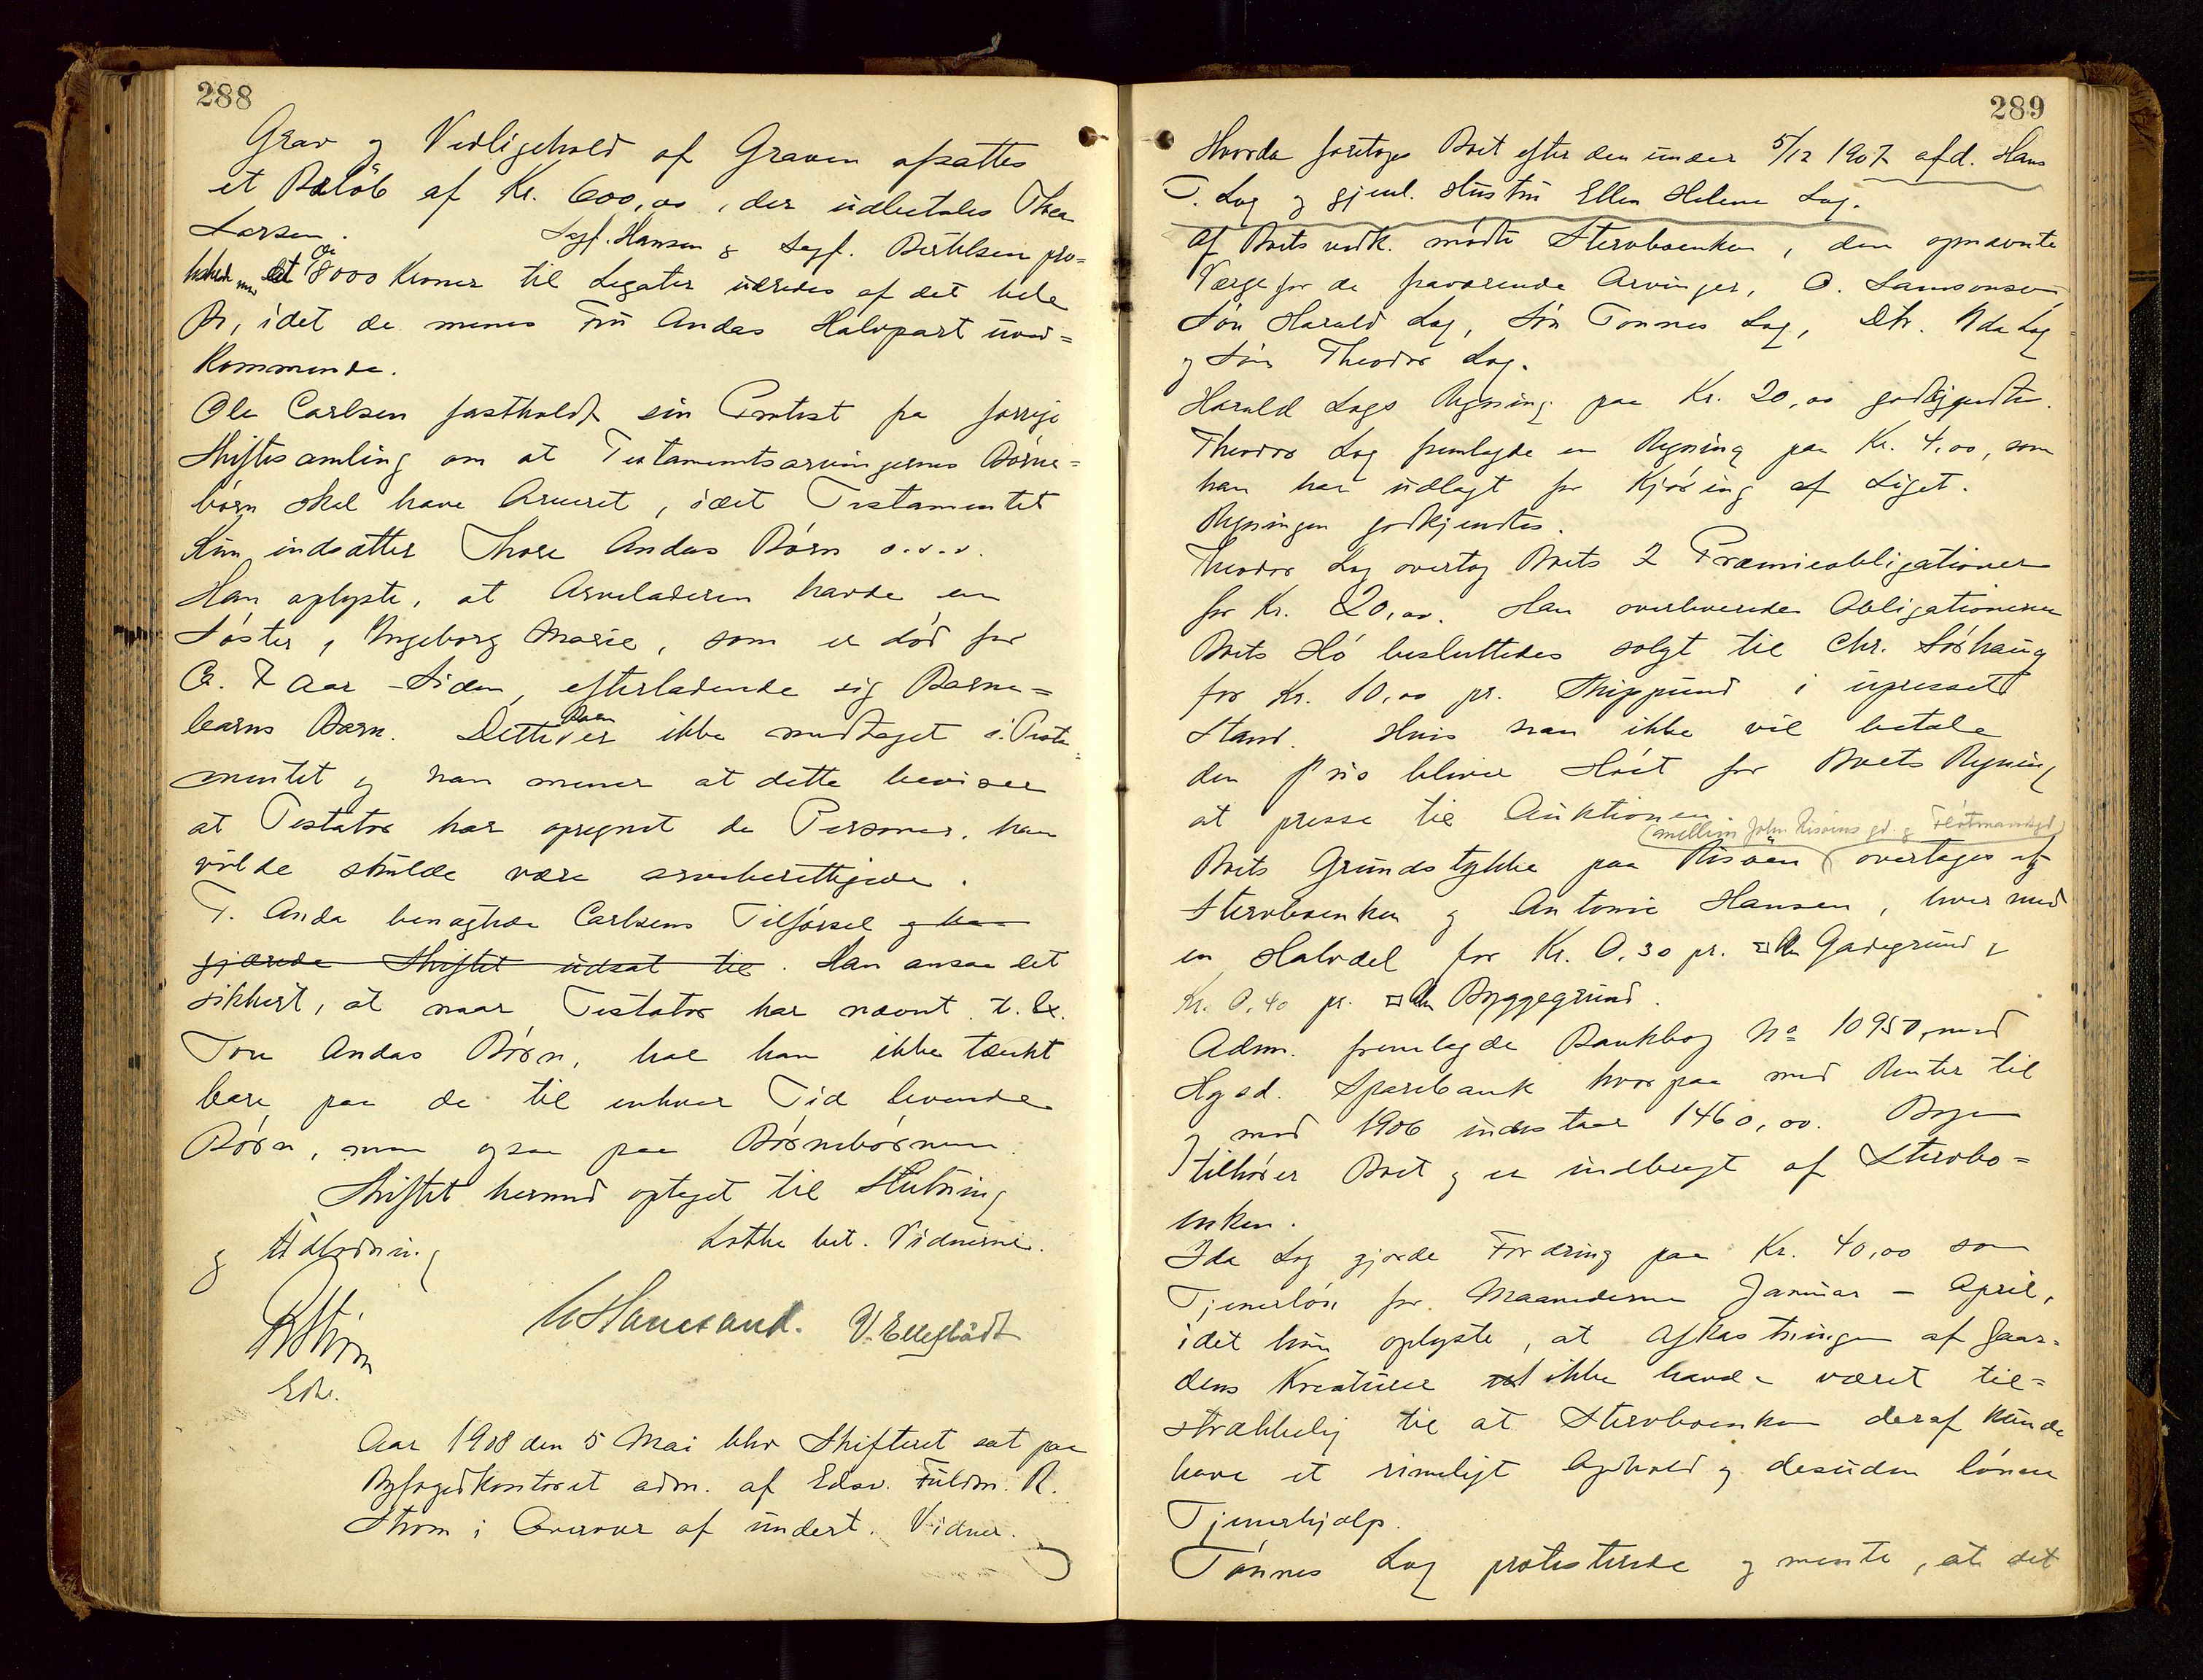 288
Grav og Vedligehold af Graven afsattes
et Beløb af Kr. 600,00, der udbetales Thea
Larsen. Sagf. Hansen & Sagf. Bertelsen pro=
mod at de 8000 Kroner til Legater udredes af det hele
Bo, idet de menes Fru Andas Halvpart uved=
kommende.
Ole Carlsen fastholdt sin Protest fra forrige
Skiftesamling om at Testamentsarvingernes Børne=
børn skal have Arveret, idet Testamentet
kun indsætter Thore Andas Børn o.s.v.
Han oplyste, at Arveladeren havde en
Søster, Ingeborg Marie, som er død for
Ca. 7 Aar Siden, efterladende sig Barne=
barns Barn. Dette Barn er ikke medtaget i Testa=
mentet og han mener at dette beviser
at Testator har opregnet de Personer, han
vilde skulde være arveberettigede.
T. Anda benægtede Carlsens Tilførsel og han
gjærede Skiftet udsat til. Han ansaa det
sikkert, at naar Testator har nævnt t. Ex.
Tore Andas Børn, har han ikke tænkt
bare paa de til enhver Tid levende
Børn, men ogsaa paa Børnebørnene.
Skiftet hermed optaget til Slutning
og Udlodning Lotke bet. Vidnerne.
RStrøm V. Ellefstadt
Edv.
Aar 1908 den 5 Mai blev Skifteret sat paa
Byfogedkontoret adm. af Edsv. Fuldm. R.
Strøm i Overvær af undert. Vidner.
289
Hvorda foretoges Boet efter den under 5/12 1907 afd. Hans
T. Log og gjenl. Hustru Ellen Helene Log.
Af Boets vedk. mødte Stervboenken, den opnævnte
Værge for de fraværende Arvinger, O. Samsonsen
Søn Harald Log, Søn Tønnes Log, Dtr. Ida Log
og Søn Theodor Log.
Harald Logs Regning paa Kr. 20,00 godkjendtes.
Theodor Log fremlagde en Regning paa Kr. 4,00, som
han har udlagt for Kjøring af Liget.
Regningen godkjendtes.
Theodor Log overtog Boets 2 Præmieobligationer
for Kr. 20,00. Han overleverede Obligationerne
Boets Hø besluttedes solgt til Chr. Sørhaug
for Kr. 10,00 pr. Skippund i upresset
Stand. Hvis han ikke vil betale
den Pris bliver Høet for Boets Regning
at presse til Auktionen.
(mellem John Risøens gd. &
Boets Grundstykke paa Risøen overtages af
Stervboenken og Antonie Hansen, hver med
en Halvdel for Kr. 0,30 pr. □ Al. Gadegrund &
Kr. 0,40 pr. □ Al. Byggegrund.
Adm. fremlagde Bankbog No 10950, med
Hgsd. Sparebank hvorpaa med Renter til
og med 1906 indestaar 1460,00. Bogen
tilhører Boet og er indbragt af Stervbo=
enken.
Ida Log gjorde Fordring paa Kr. 40,00 som
Tjenerløn for Maanederne Januar – April,
idet hun oplyste, at Afkastningen af Gaar=
dens Kreaturer ikke havde været til=
strækkelig til at Stervboenken deraf kunde
have et rimeligt Ophold og desuden lønne
Tjenerhjælp.
Tønnes Log protesterede og mente, at det